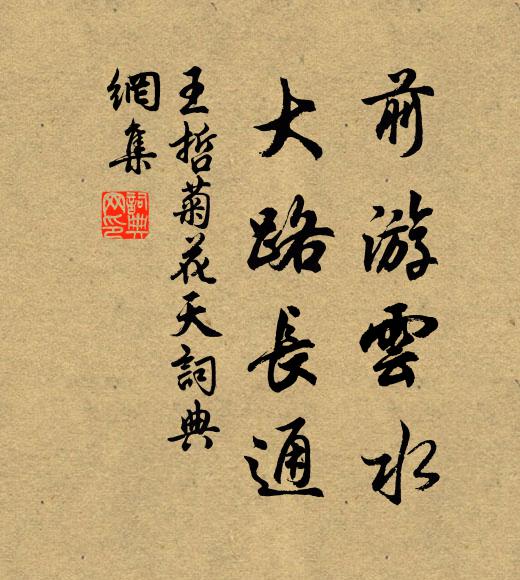 前游雲水
大路長通
王哲菊花天詞典
網集
詞典
网印